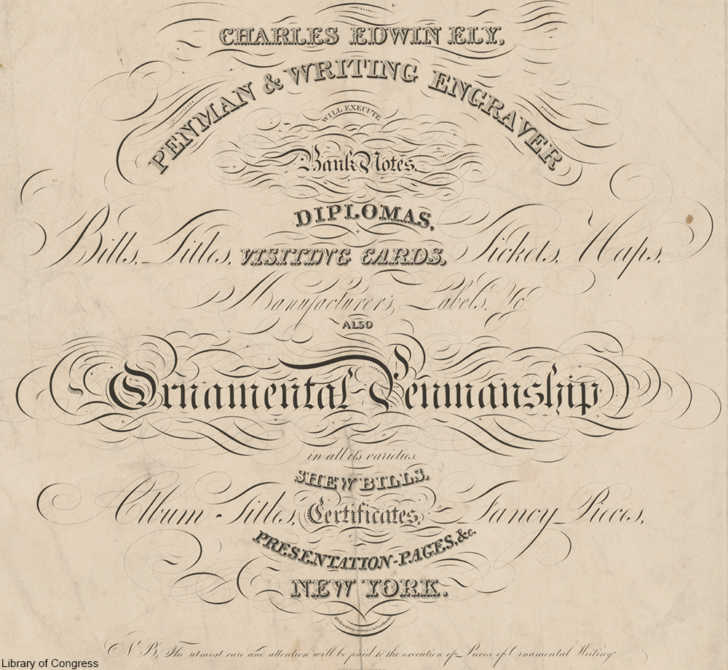 CHARLES EDWIN ELY,
PENMAN & WRITING ENGRAVER
WILL EXECUTE
Bank Notes,
DIPLOMAS,
Bills, Titles, VISITING CARDS, Tickets, Maps,
Manufacturers, Labels, &c
ALSO
Ornamental Penmanship
in all its varieties
SHEW BILLS,
Album Titles, Certificates, Fancy Pieces,
PRESENTATION-PAGES, &c.
NEW YORK.
N B, The utmost care and attention will be paid to the execution of Pieces of Ornamental Writing
Library of Congress